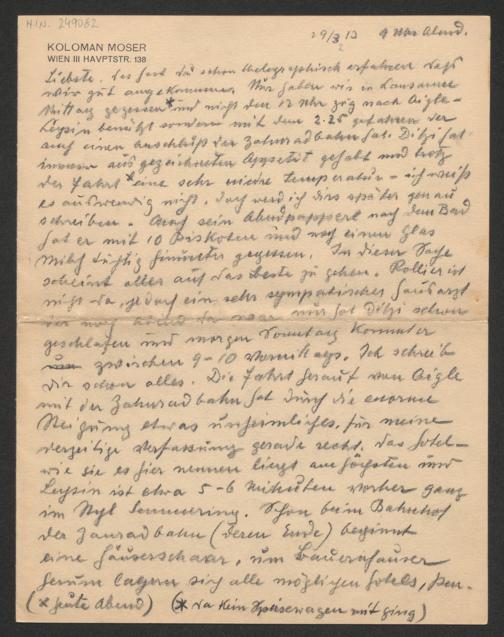 H.I.N. 249032
KOLOMAN MOSER
WIEN III HAVPTSTR. 138
29/3 13 9 Uhr Abend.
Liebste. das hast du schon thelegraphisch erfahren daß
wir gut angekommen. Nur haben wir in Lausanne
Mittag gegessen * und nicht den 12 Uhr zug nach Aigle-
Leysin benützt sondern mit dem 2.25 gefahren der
auch einen anschluß der Zahnradbahn hat. Ditzi hat
immer ausgezeichneten Appetit gehabt und trotz
der Fahrt * eine sehr niedre temperatur – ich weiß
es auswendig nicht, doch werd ich dirs später genau
schreiben. Auf sein Abendpapperl nach dem Bad
hat er mit 10 Biskoten und noch einem Glas
Milch tüchtig hinunter gegessen. In dieser Sache
scheint alles auf das beste zu gehen. Rollier ist
nicht da, jedoch ein sehr sympatischer Hausarzt
der noch abend da war, nur hat Ditzi schon
geschlafen und morgen Sonntag kommt er
zwischen 9-10 vormittags. Ich schreib
dir schon alles. Die Fahrt herauf von Aigle
mit der Zahnradbahn hat durch die enorme
Neigung etwas unheimliches, für meine
derzeitige Verfassung gerade recht. das Hotel –
wie sie es hier nennen liegt am höchsten und
Leysin ist etwa 5-6 Minuten vorher ganz
im Styl Semmering. Schon beim Bahnhof
der Zanradbahn (deren Ende) beginnt
eine Häuserschaar, um Bauernhäuser
herum lagern sich alle möglichen Hotels, Pen-
(* heute Abend) (* da kein Speisewagen mit ging)